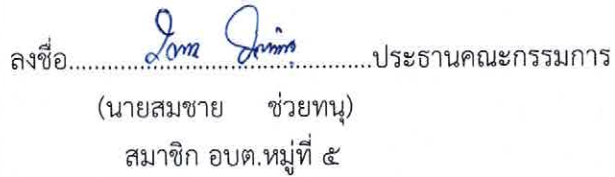 ลงชื่อ....................................................ประธานคณะกรรมการ
(นายสมชาย ช่วยทนุ)
สมาชิก อบต.หมู่ที่ ๕